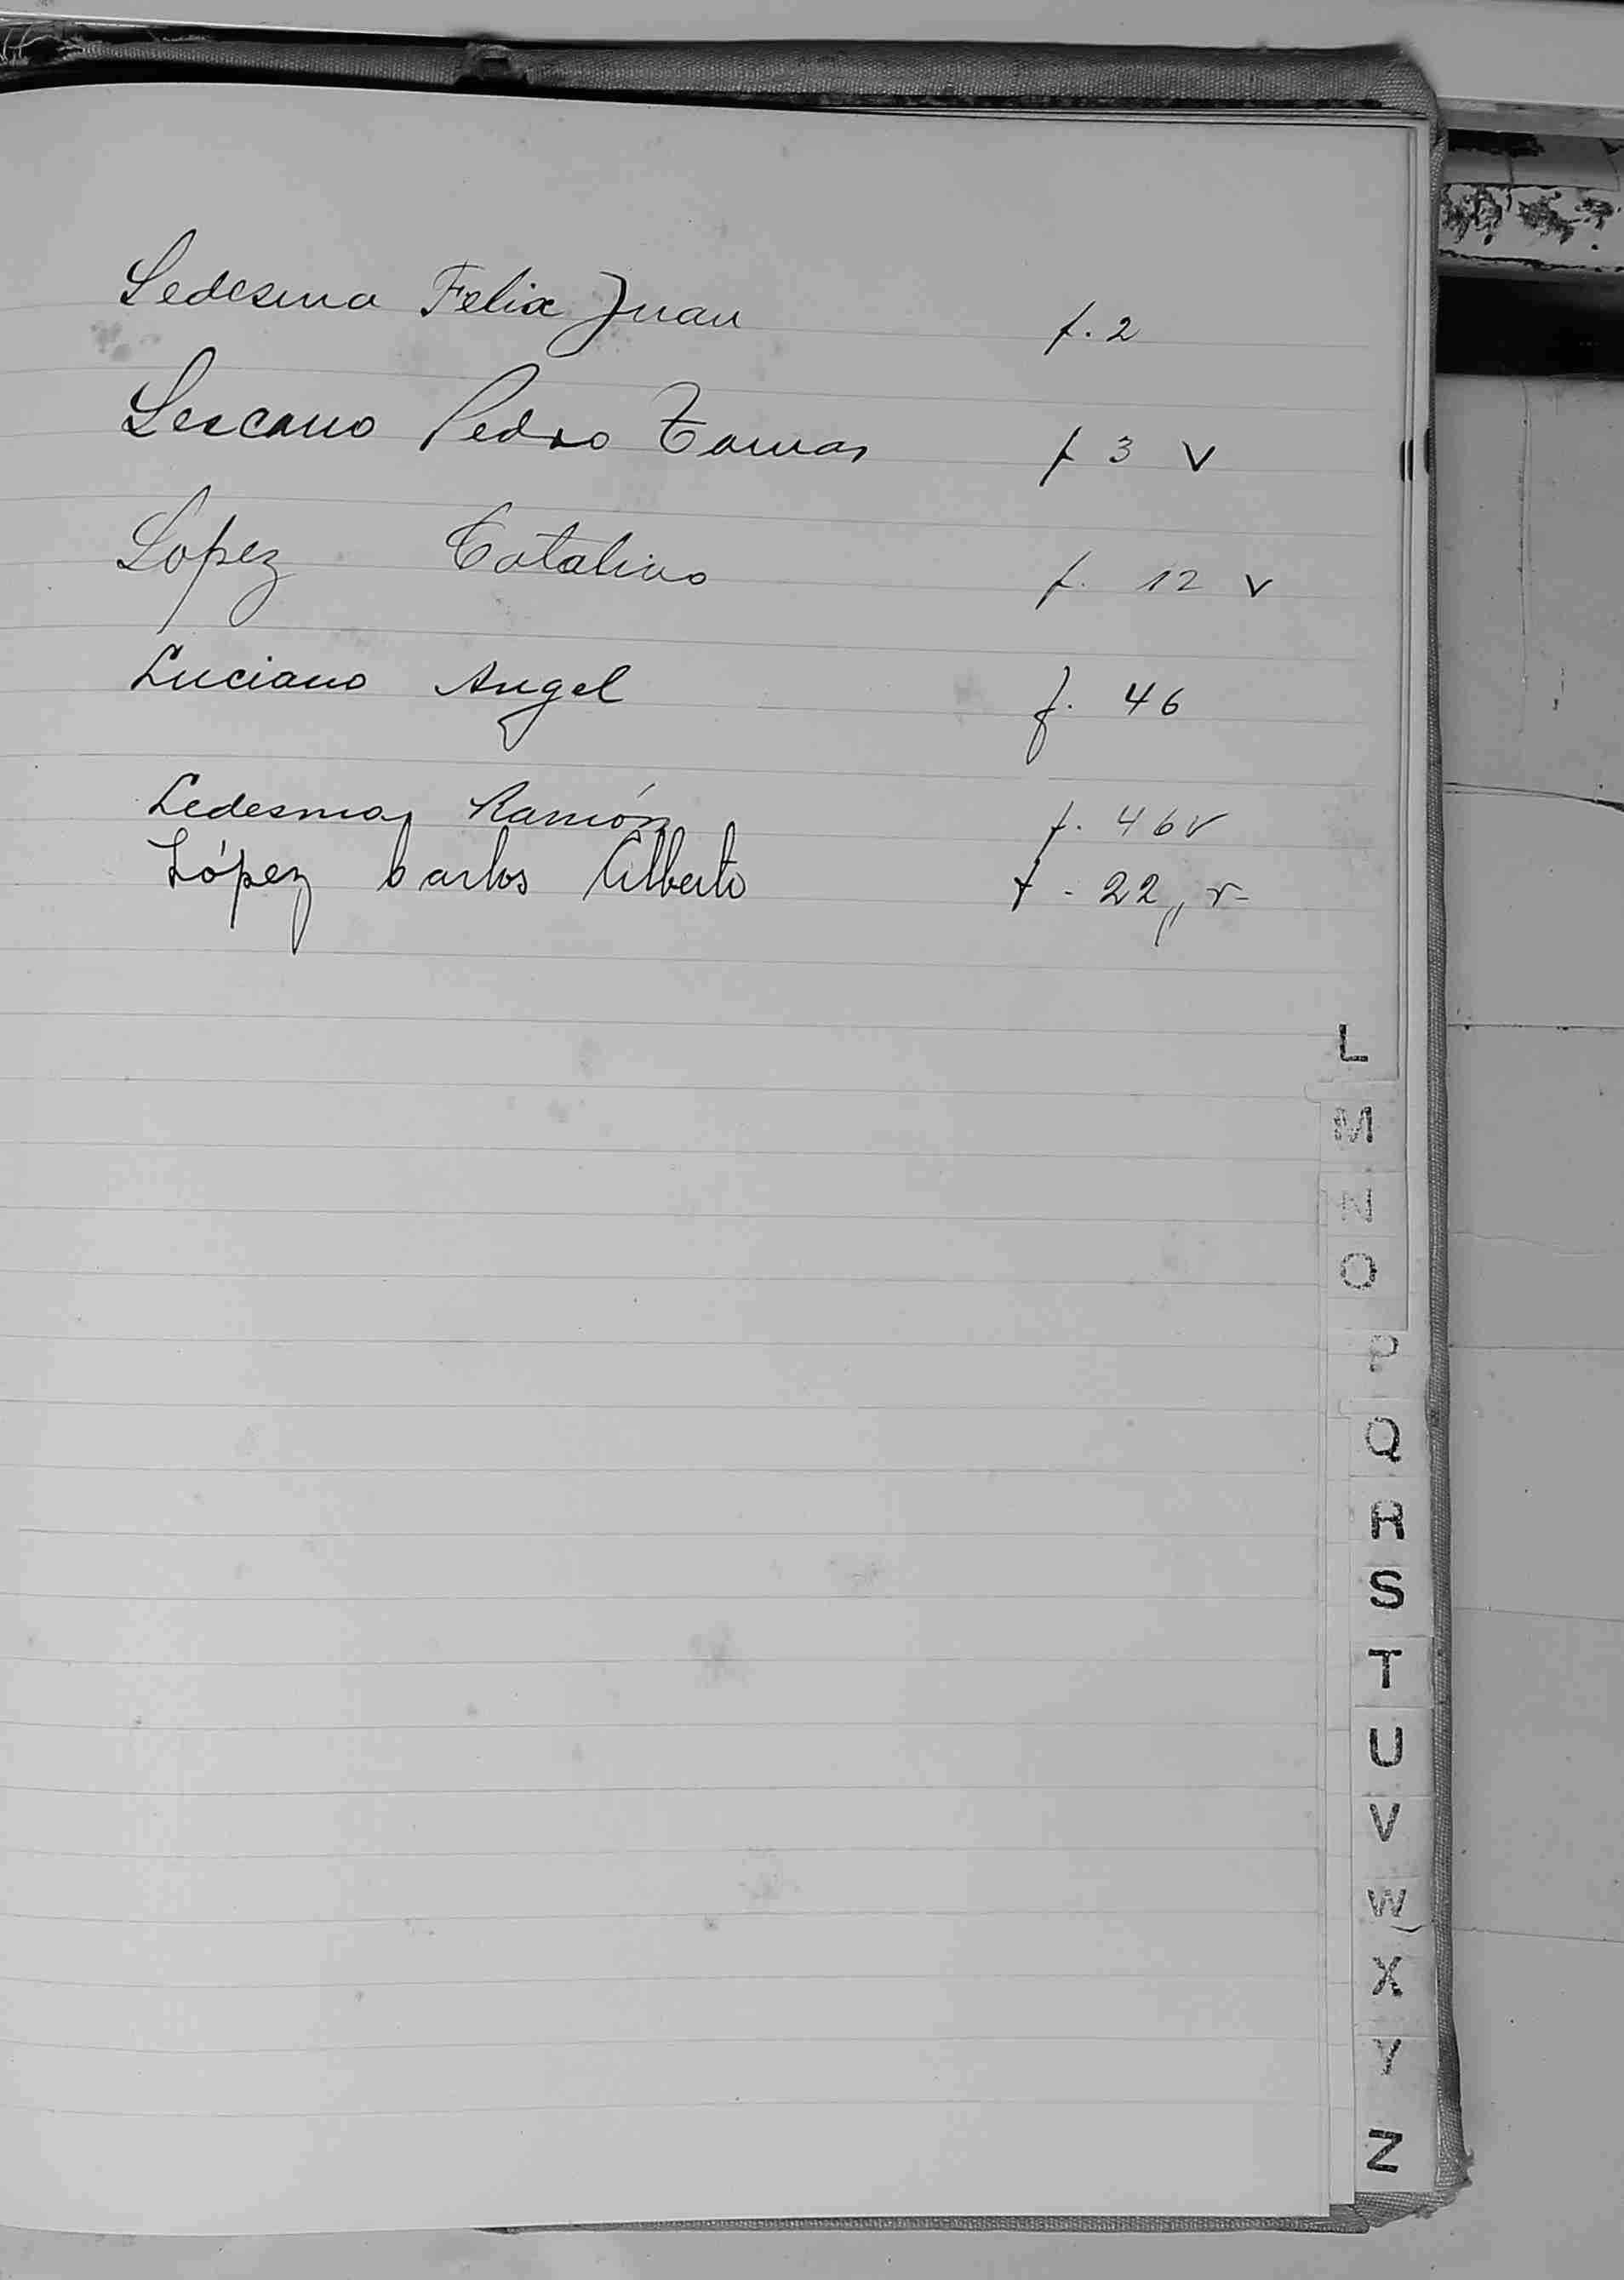 Ledesma Felix Juan f. 2
Lescano Pedro Tomas f 3 v
Lopez Catalino f. 12 v
Luciano Angel f. 46
Ledesma, Ramón f. 46v
López Carlos Alberto f - 22,, v-
L
M
N
O
P
Q
R
S
T
U
V
W
X
Y
Z